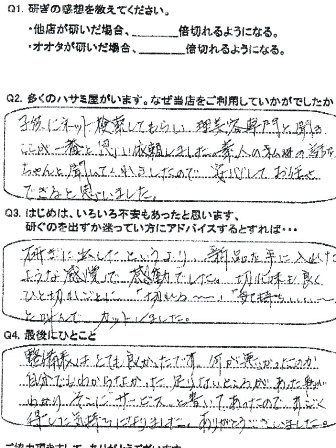 Q1. 研ぎの感想を教えてください。
・他店が研いだ場合、______倍切れるようになる。
・オオタが研いだ場合、______倍切れるようになる。
Q2. 多くのハサミ屋がいます。なぜ当店をご利用していかがでしたか
子供にネット検索してもらい、理美容専門と聞き
ここが一番と思い依頼しました。素人の私の話を
ちゃんと聞いて下さったので 安心してお任せ
できると思いました。
Q3. はじめは、いろいろ不安もあったと思います、
研ぐのを出すか迷ってい方にアドバイスするとすれば・・・
研ぎに出したというより、新品を手に入れた
ような感覚で 感動でした。切れ味も良く
ひと切りごとに 「切れる〜」「気持ちいい〜」
と叫んで カットしました。
Q4. 最後にひとこと
整備も とても良かったです。何が悪かったのか
自分でもわからなかった 足りないところがあった事が
わかり そこに サービス と書いてあったので すごく
得した気持ちになりました。ありがとうございました。